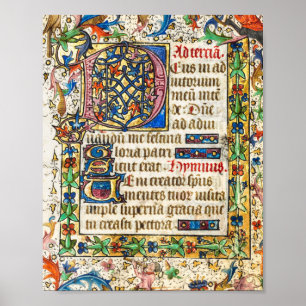 Ad terciã.
Deus in ad
iutorium
meũ inte
x. Dñe
ad adiu
uanduʒ me festina
Gloria patri
Sicut erat. Hymnus.
Veni creator spũs
mentes tuorʒ uisita
imple superna gracia que
tu creasti pectora.